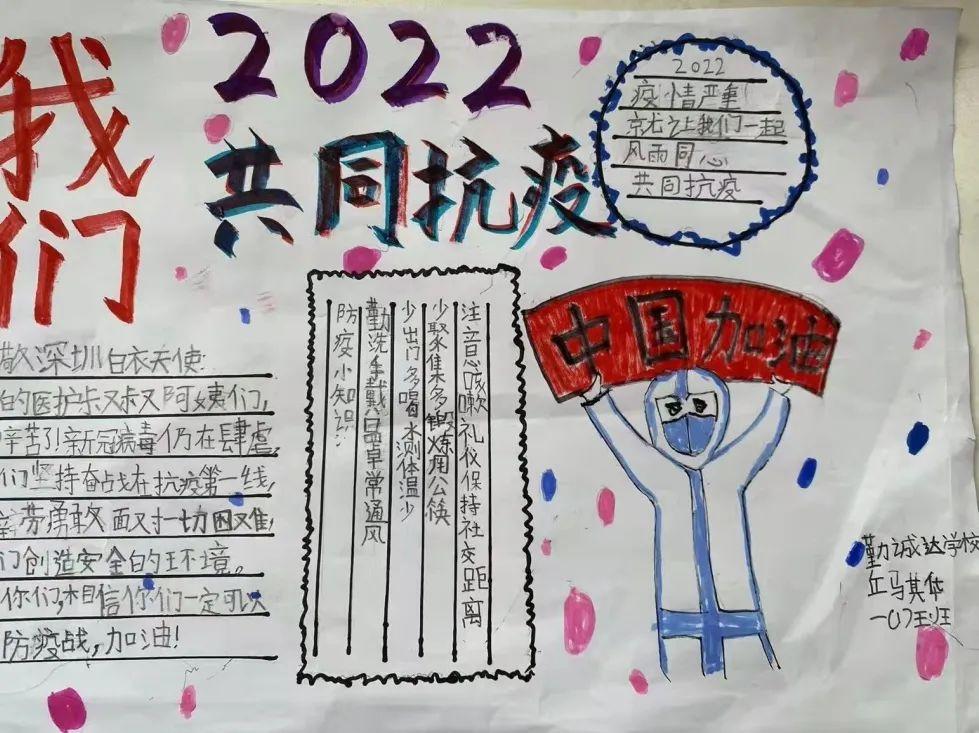 2022
我们
共同抗疫
2022
疫情严重
我们一起
风雨同心
共同抗疫
中国加油
敬深圳白衣天使:
的医护叔叔阿姨们,
辛苦了!新冠病毒仍在肆虐,
们坚持奋战在抗疫第一线,
辛劳勇敢面对一切困难,
门创造安全的环境。
你们,相信你们一定可以
防疫战,加油!
防疫小知识:
勤洗手戴口罩常通风
少出门多喝水测体温少
少聚集多锻炼用公筷
注意咳嗽礼仪保持社交距离
勤诚达学校